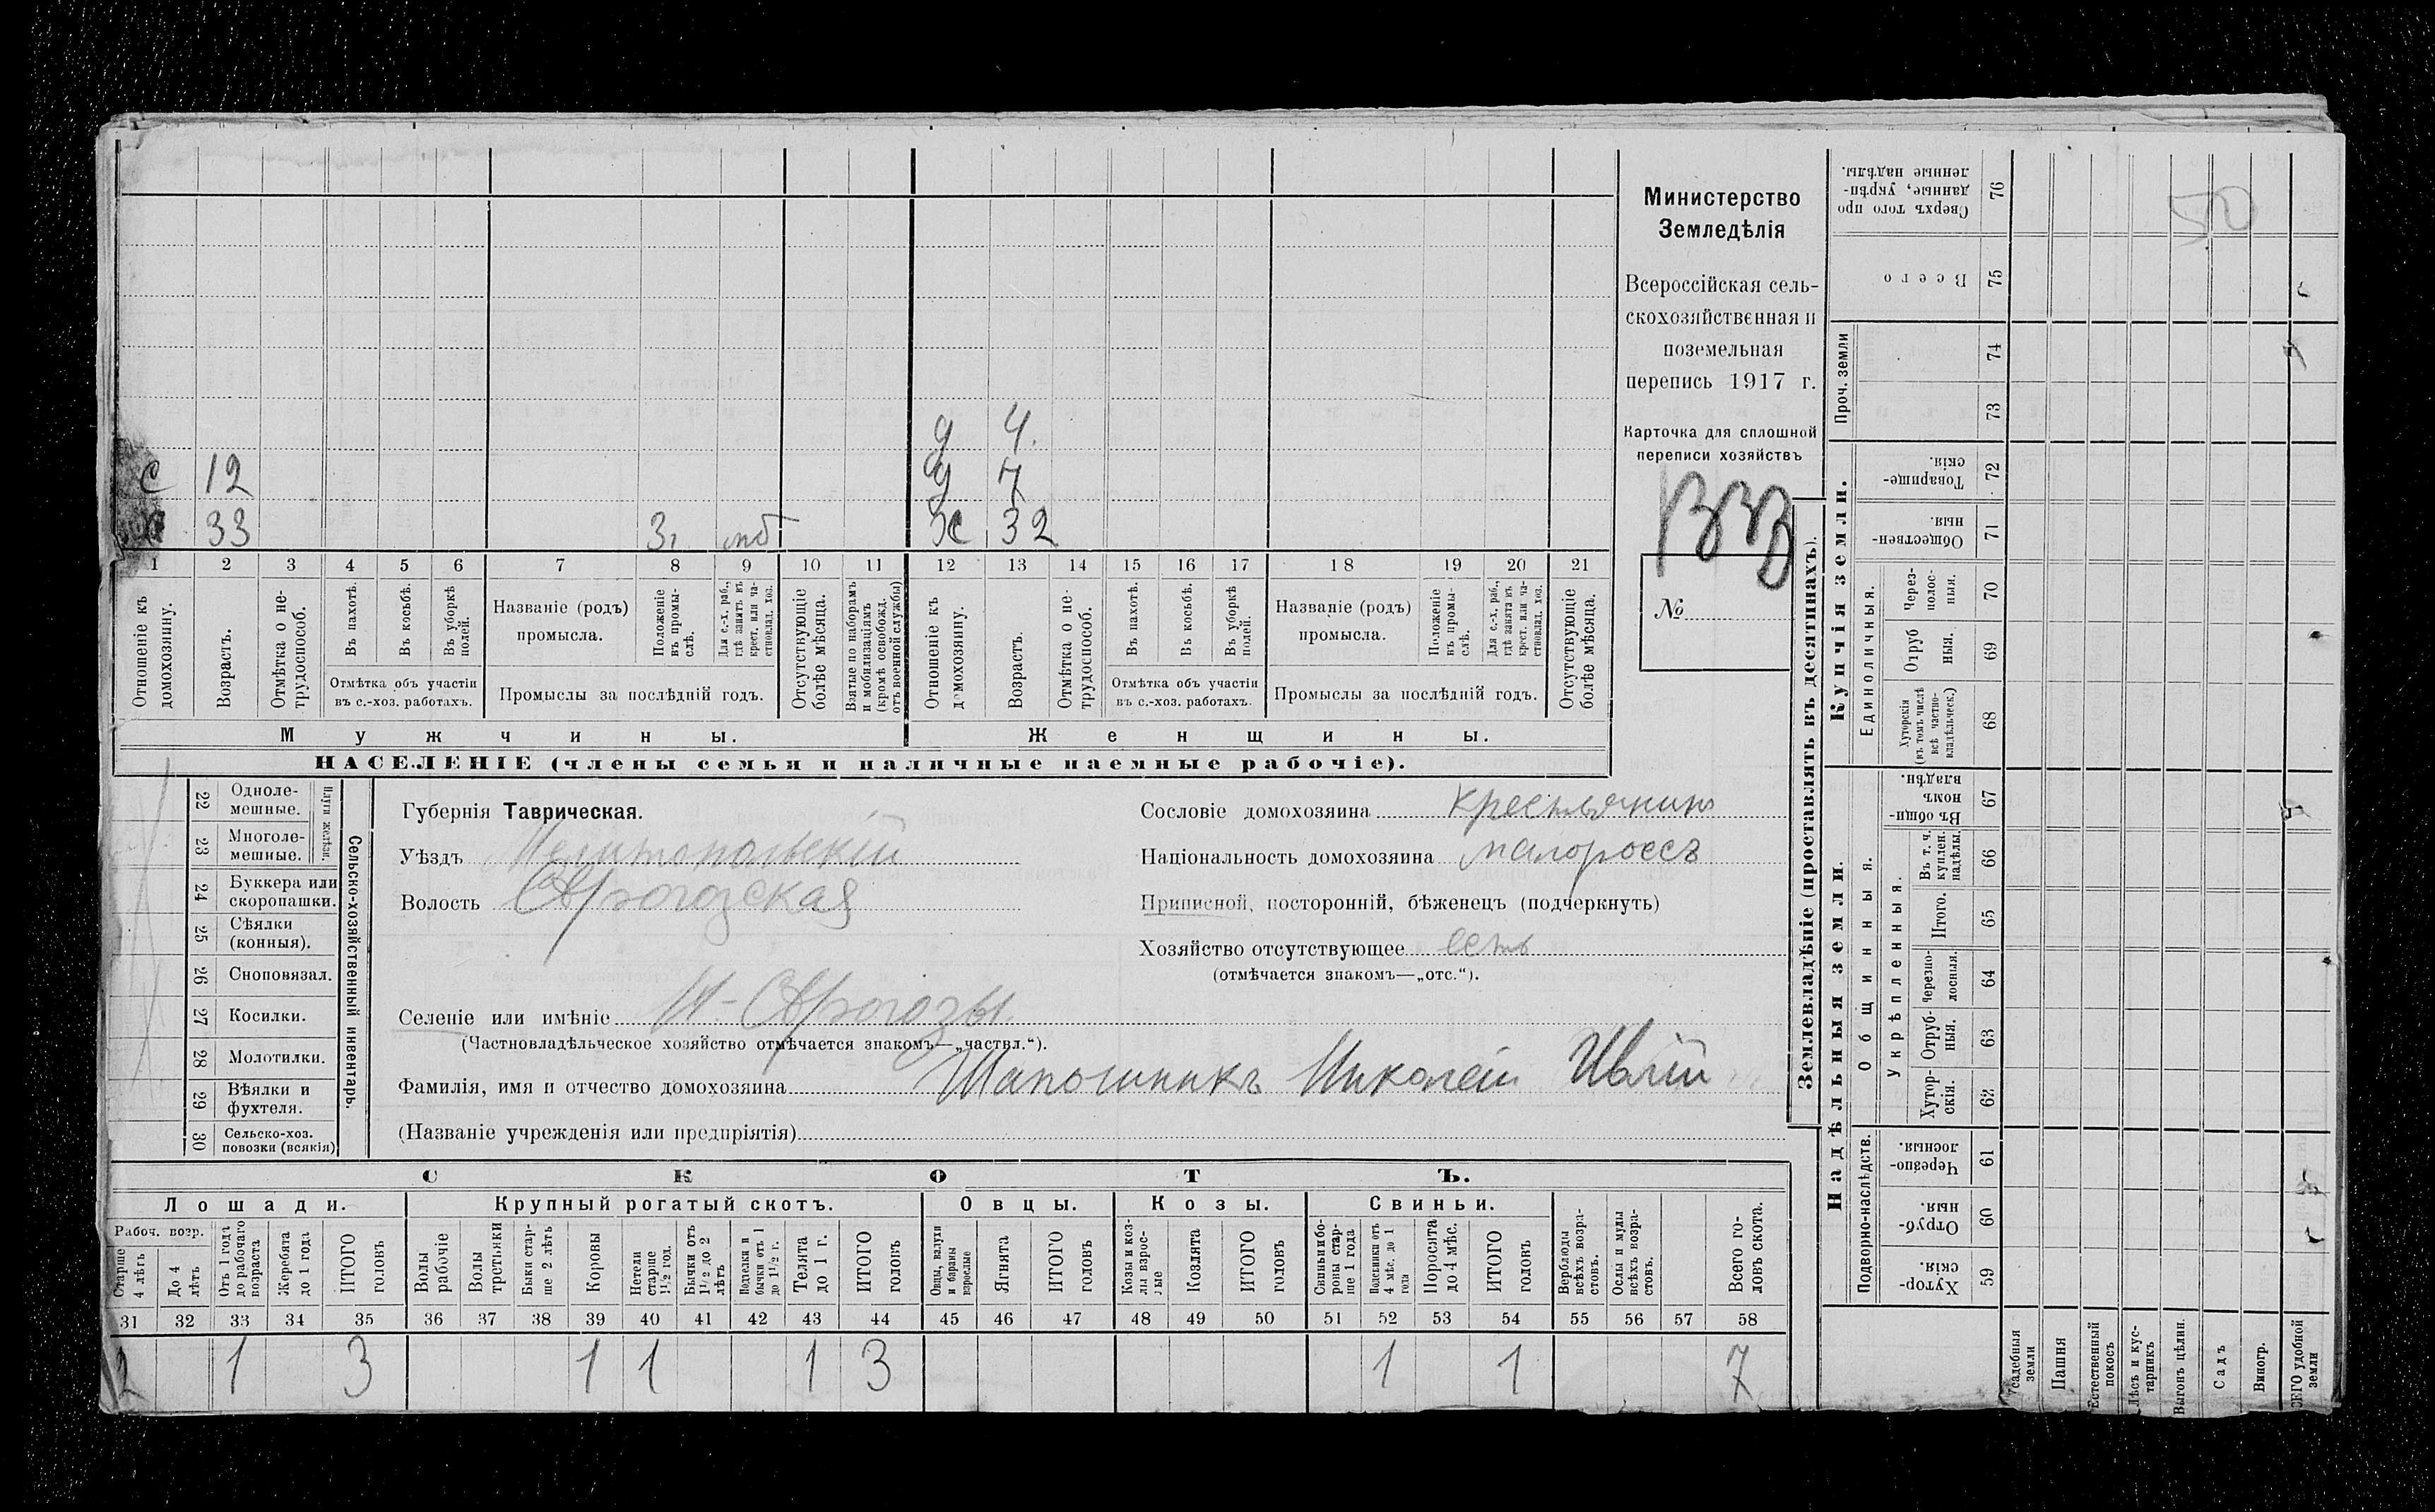 50
Министерство
Земледѣлія
Всероссійская сель-
скохозяйственная и
поземельная
перепись 1917 г.
Карточка для сплошной
переписи хозяйствъ
№
д 4.
с 12 д 7
33 з, ж 32
1 2 3 4 5 6 7 8 9 10 11 12 13 14 15 16 17 18 19 20 21
Отношеніе къ домохозяину.
Возрастъ.
Отмѣтка о не-трудоспособ.
Въ пахотѣ.
Въ косьбѣ.
Въ уборкѣ полей.
Отмѣтка объ участіи
въ с.-хоз. работахъ.
Названіе (родъ)
промысла.
Положеніе въ промы-слѣ.
Для с.-х. раб., гдѣ занятъ въ крест. или ча-стновлад. хоз.
Промыслы за послѣдній годъ.
Отсутствующіе болѣе мѣсяца.
Взятые по наборамъ и мобилизаціямъ (кромѣ освобожд. отъ военной службы)
Отношеніе къ домохозяину.
Возрастъ.
Отмѣтка о не-трудоспособ.
Въ пахотѣ.
Въ косьбѣ.
Въ уборкѣ полей.
Отмѣтка объ участіи
въ с.-хоз. работахъ.
Названіе (родъ)
промысла.
Положеніе въ промы-слѣ.
Для с.-х. раб., гдѣ занята въ крест. или ча-стновлад. хоз.
Промыслы за послѣдній годъ.
Отсутствующіе болѣе мѣсяца.
Мужчины. Женщины.
НАСЕЛЕНІЕ (члены семьи и наличные наемные рабочіе).
22 Одноле-мешные.
23 Многоле-мешные.
Плуги желѣзн.
24 Буккера или скоропашки.
25 Сѣялки (конныя).
26 Сноповязал.
27 Косилки.
28 Молотилки.
29 Вѣялки и фухтеля.
30 Сельско-хоз. повозки (всякія)
Сельско-хозяйственный инвентарь.
Губернія Таврическая.
Уѣздъ Мелитопольскій
Волость
Селеніе или имѣніе
(Частновладѣльческое хозяйство отмѣчается знакомъ—„частвл.“).
Фамилія, имя и отчество домохозяина Шапошникъ Николай
(Названіе учрежденія или предпріятія)
Сословіе домохозяина крестьянинъ
Національность домохозяина малороссъ
Приписной, посторонній, бѣженецъ (подчеркнуть)
Хозяйство отсутствующее есть
(отмѣчается знакомъ—„отс.“).
СКОТЪ.
Лошади. Крупный рогатый скотъ. Овцы. Козы. Свиньи.
Рабоч. возр.
Старше 4 лѣтъ
До 4 лѣтъ
Отъ 1 года до рабочаго возраста
Жеребята до 1 года
ИТОГО головъ
Волы рабочіе
Волы третьяки
Быки стар-ше 2 лѣтъ
Коровы
Нетели старше 1½ год.
Бычки отъ 1½ до 2 лѣтъ
Подтелки и бычки отъ 1 до 1½ г.
Телята до 1 г.
ИТОГО головъ
Овцы, валухи и бараны взрослые
Ягнята
ИТОГО головъ
Козы и коз-лы взрос-лые
Козлята
ИТОГО головъ
Свиньи и бо-ровы стар-ше 1 года
Подсвинки отъ 4 мѣс. до 1 года
Поросята до 4 мѣс.
ИТОГО головъ
Верблюды всѣхъ возра-стовъ.
Ослы и мулы всѣхъ возра-стовъ.
Всего го-ловъ скота.
31 32 33 34 35 36 37 38 39 40 41 42 43 44 45 46 47 48 49 50 51 52 53 54 55 56 57 58
2 1 3 1 1 1 3 1 1 7
Землевладѣніе (проставлять въ десятинахъ).
Надѣльныя земли.
Купчія земли.
Проч. земли
Подворно-наслѣдств.
Общинныя.
Укрѣпленныя.
Единоличныя.
Хутор-скія. 59
Отруб-ныя. 60
Черезпо-лосныя. 61
Хутор-скія. 62
Отруб-ныя. 63
Черезпо-лосныя. 64
Итого. 65
Въ т. ч. куплен. надѣлы. 66
Въ общи-номъ владѣн. 67
Хуторскія (въ томъ числѣ всѣ частно-владѣльческ.) 68
Отруб ныя. 69
Через-полос-ныя. 70
Обществен-ныя. 71
Товарище-скія. 72
73
74
Всего 75
Сверхъ того про данные, укрѣп-ленные надѣлы. 76
Усадебныя земли
Пашня
Естественный покосъ
Лѣсъ и кус-тарникъ
Выгонъ цѣлин.
Садъ
Виногр.
ВСЕГО удобной земли